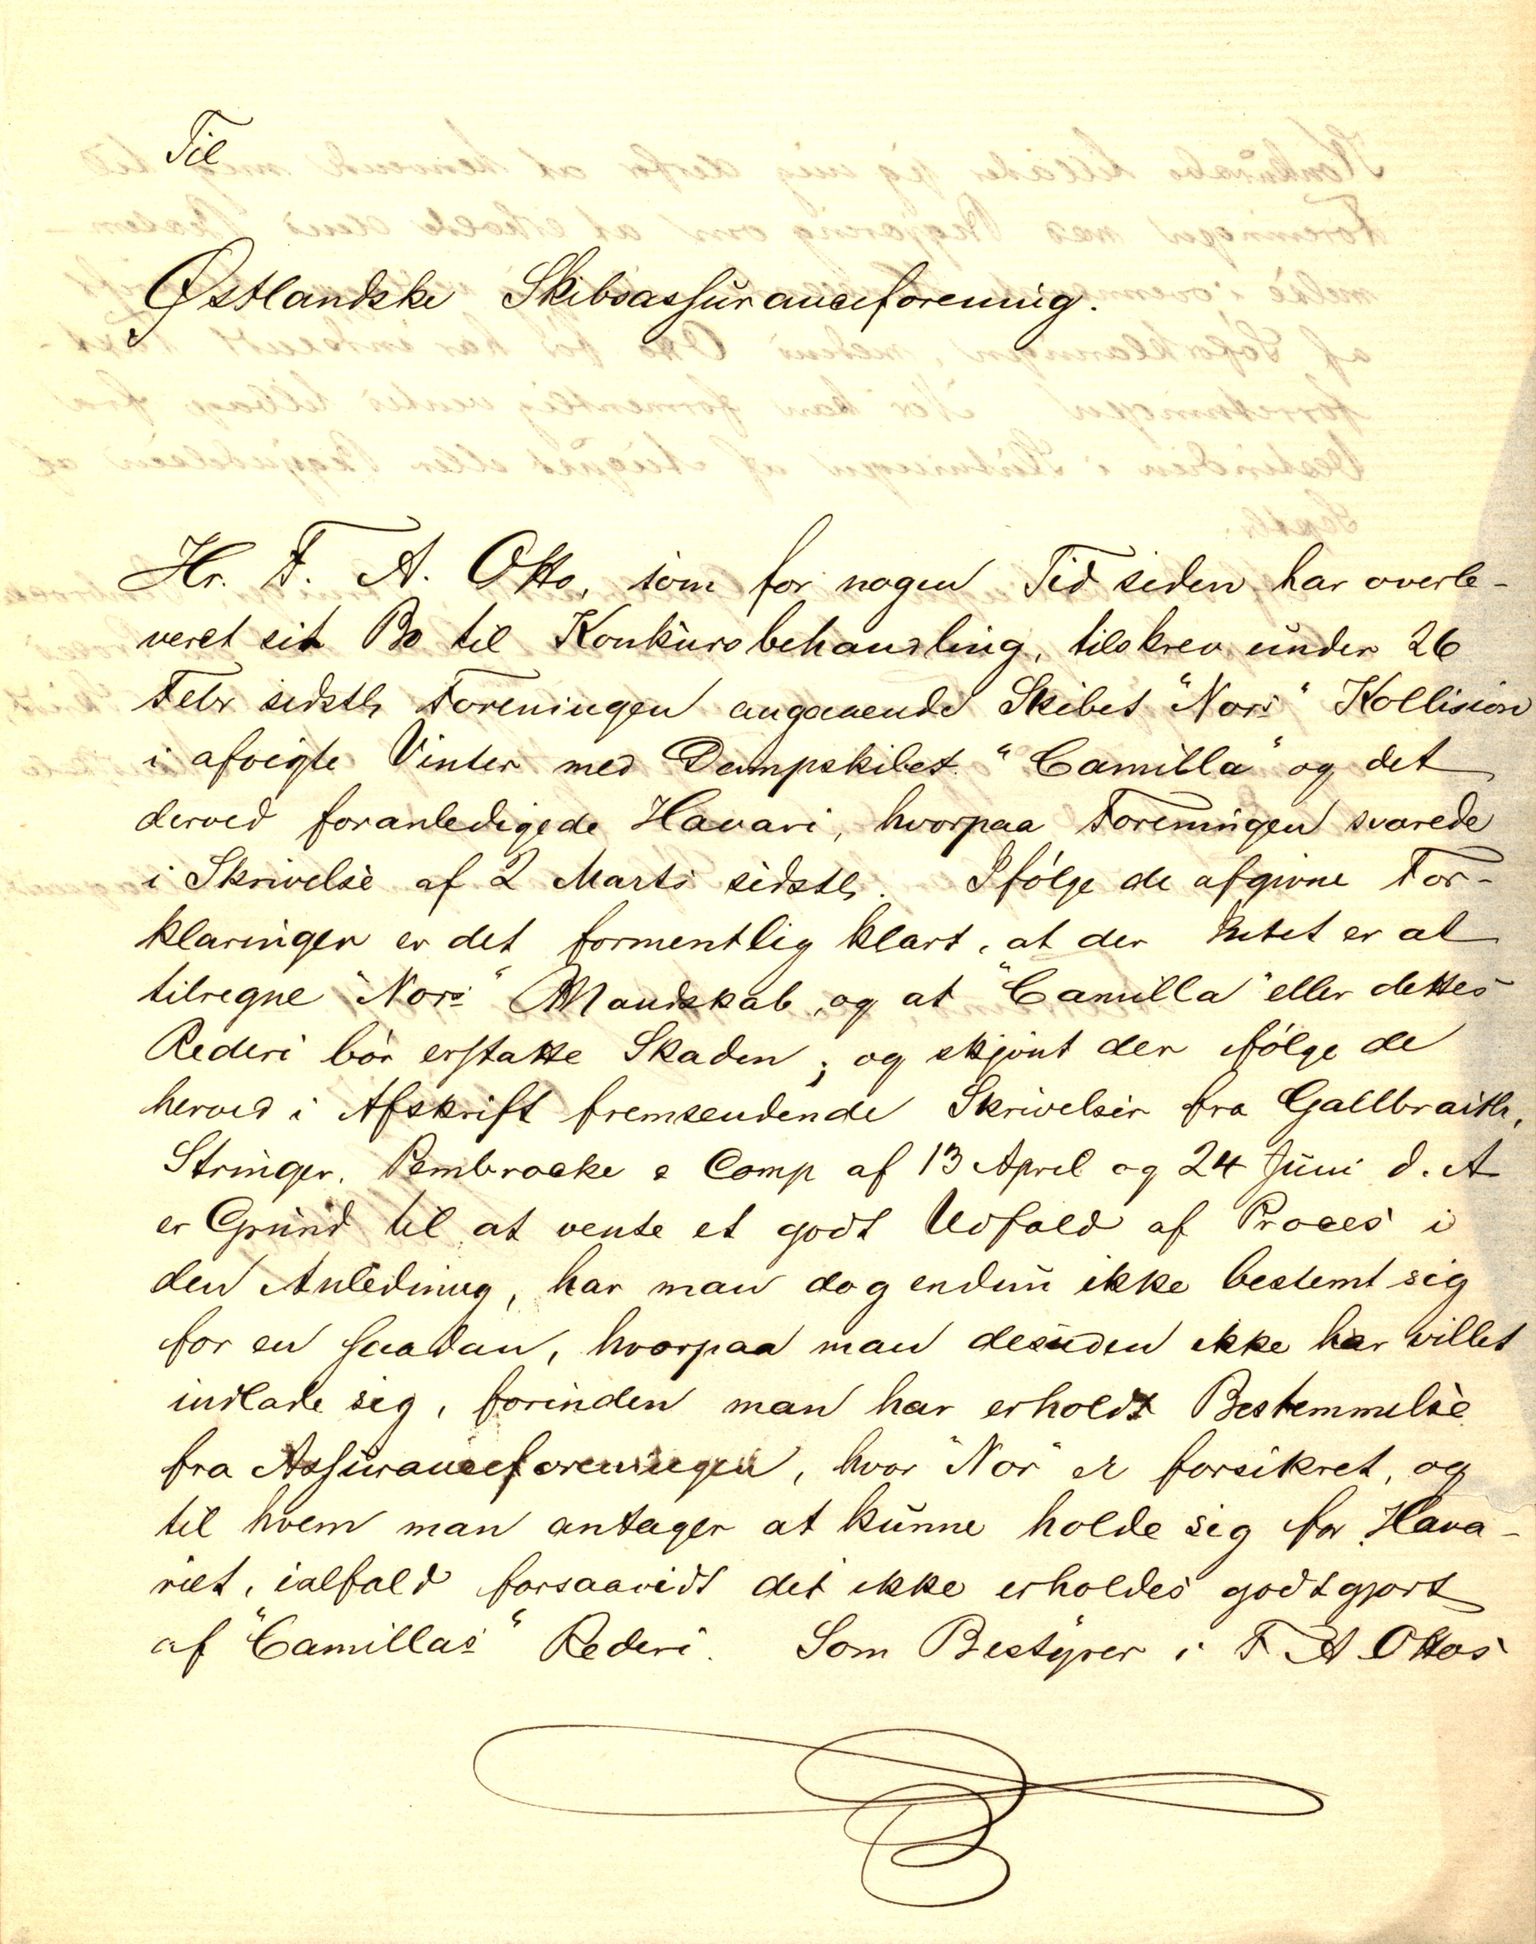 Til
Østlandske Skibsassuranceforening.
Hr. F. A. Otto, som for nogen Tid siden har overle-
veret sit Bo til Konkursbehandling, tilskrev under 26
Febr sidstl. Foreningen angaaende Skibet "Nors" Kollision
i afveigte Vinter med Dampskibet "Camilla" og det
derved foranledigede Havari, hvorpaa Foreningen svarede
i Skrivelse af 2 Marts sidstl. Ifølge de afgivne For-
klaringer er det formentlig klart, at der Intet er at
tilregne "Nors" Mandskab, og at "Camilla" eller dettes
Rederi bør erstatte Skaden; og skjønt der ifølge de
herved i Afskrift fremsendende Skrivelser fra Gallbraith,
Stringer, Pembroeke & Comp af 13 April og 24 Juni d. A
er Grund til at vente et godt Udfald af Proces i
den Anledning, har man dog endnu ikke bestemt sig
for en saadan, hvorpaa man desuden ikke har villet
indlade sig, forinden man har erholdt Bestemmelse
fra Assuranceforeningen, hvor "Nor" er forsikret, og
til hvem man antager at kunne holde sig for Hava-
riet, ialfald forsaavidt det ikke erholdes godtgjort
af "Camillas" Rederi. Som Bestyrer i F A Ottos